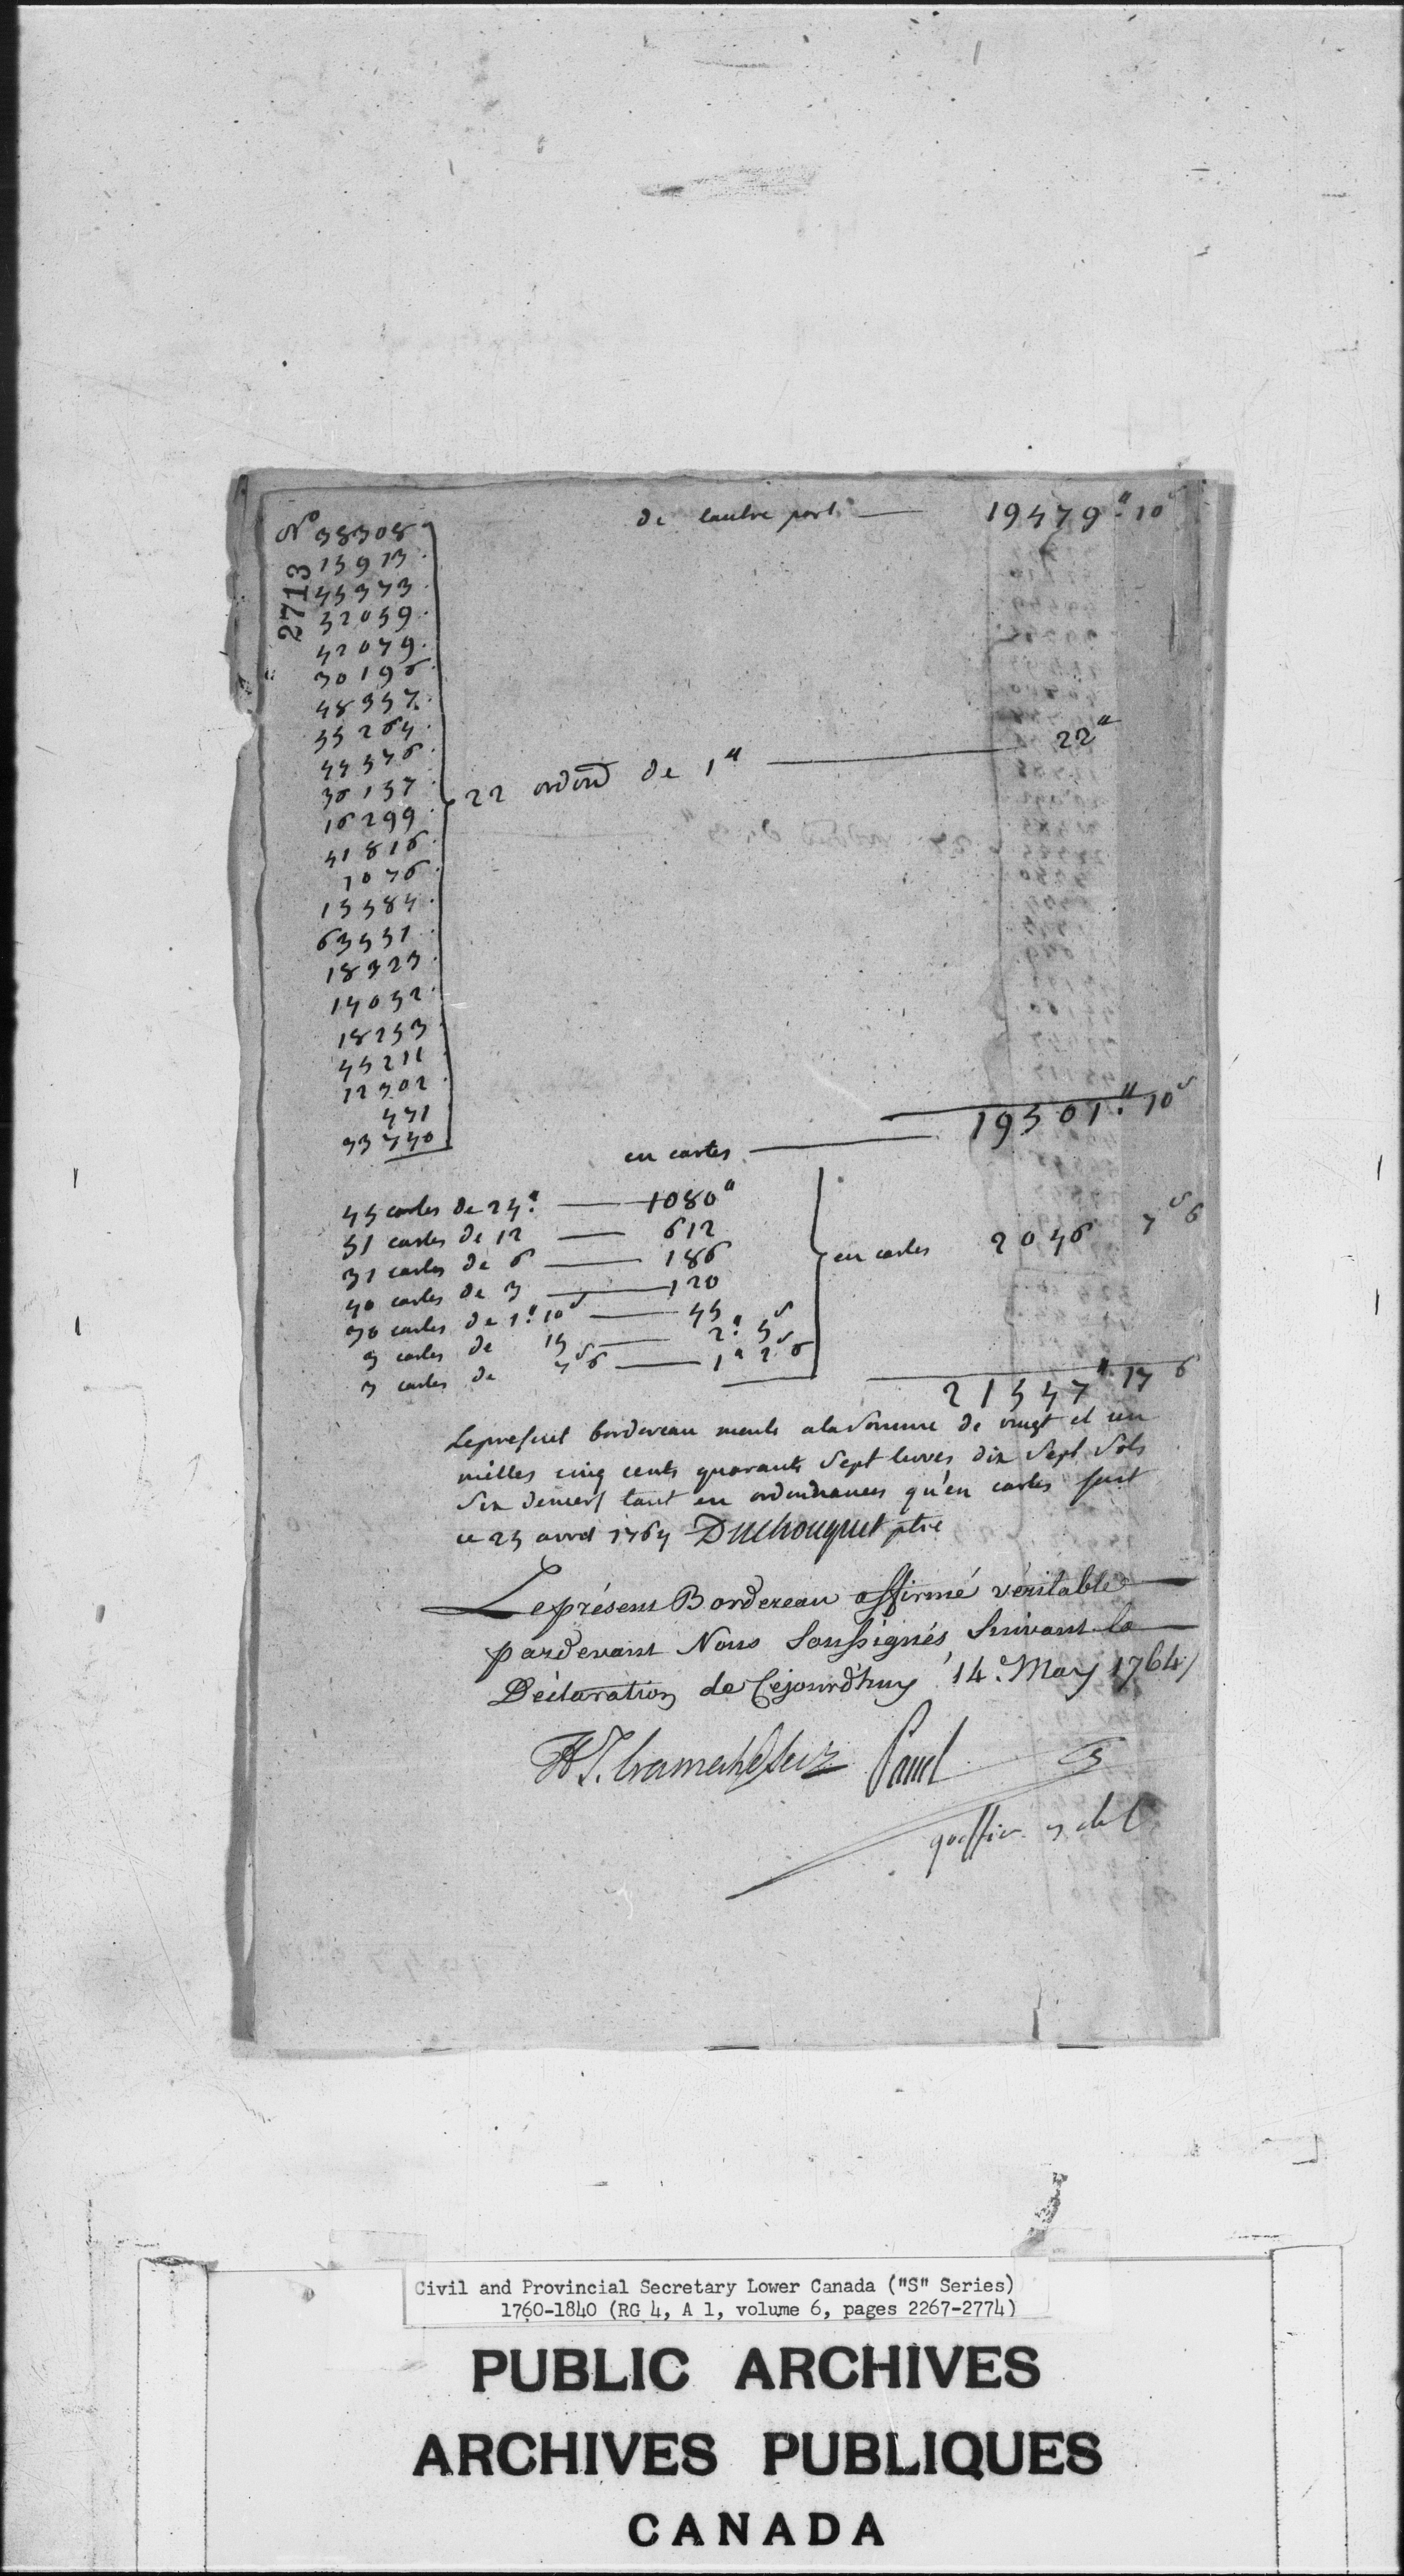 de lautre part 19479" 10s
No 38308
2713
15913
45373
32059
42079
30196
48357
55264
44376
36157
16299
41816
1076
15584
63551
18323
14032
18253
45211
12302
441
33440
22 ordord de 1" 22"
19501" 10s
en cartes
45 cartes de 24" 1080"
51 cartes de 12 612
31 cartes de 6 186
40 cartes de 3 120
30 cartes de 1" 10s 45
3 cartes de 15 2" 5s
3 cartes de 7s6 1" 2s6
en cartes 2046 7s 6
21547" 17 6
Lepresent bordereau monte alasomme de vingt et un
milles cinq cents quarante sept livres dix sept sols
six deniers tant en ordonnances qu'en cartes fait
ce 25 avril 1764 Duchouquet ptre
Leprésent Bordereau affirmé veritable
pardevant Nous Soussignés, Suivant la
Déclaration de Cejourd'huy 14e May 1764
Panet
greffier
Civil and Provincial Secretary Lower Canada ("S" Series)
1760-1840 (RG 4, A 1, volume 6, pages 2267-2774)
PUBLIC ARCHIVES
ARCHIVES PUBLIQUES
CANADA